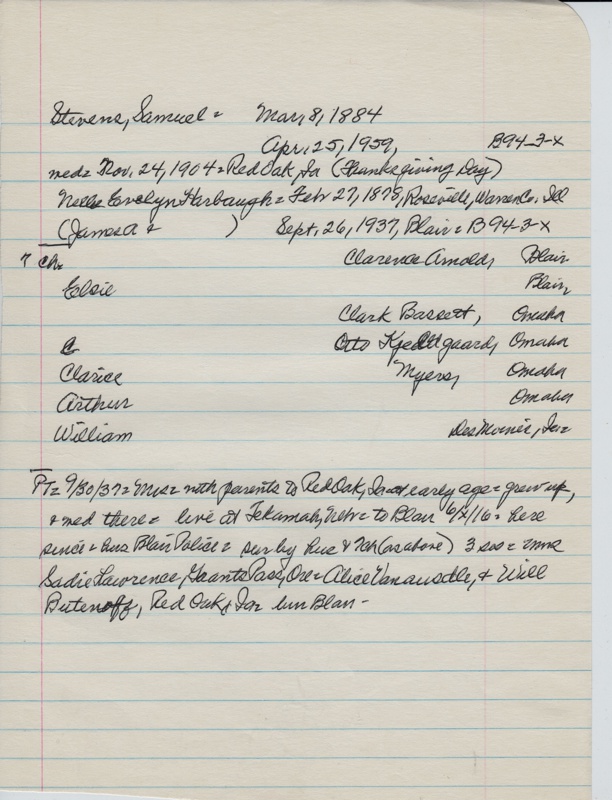 Stevens, Samuel = Mar, 8, 1884
Apr, 25, 1959, B94-3-X
med = Nov. 24, 1904 = Red Oak, Ia (Thanksgiving Day)
Evelyn Harbaugh = Febr 27, 1878, Roseville, Warren Co. Ill
(James A & ) Sept. 26, 1937, Blair = B94-3-X
7 ch. Clarence Arnold, Blair
Elsie Blair
Clark Bassett, Omaha
C Otto Kjeldgaard, Omaha
Clarice Myers, Omaha
Arthur Omaha
William Des Moines, Ia=
PT = 9/30/37 = Mrs = with parents to Red Oak, Ia = at early age = grew up,
& med there = live at Tekamah, Nebr = to Blair 6/X/16 = here
since = hus Blair Police = sur by hus & 7ch (as above) 3 sis =
Sadie Lawrence, Grants Pass, Ore = Alice & Will
Butenoff, Red Oak, Ia= bur Blair -